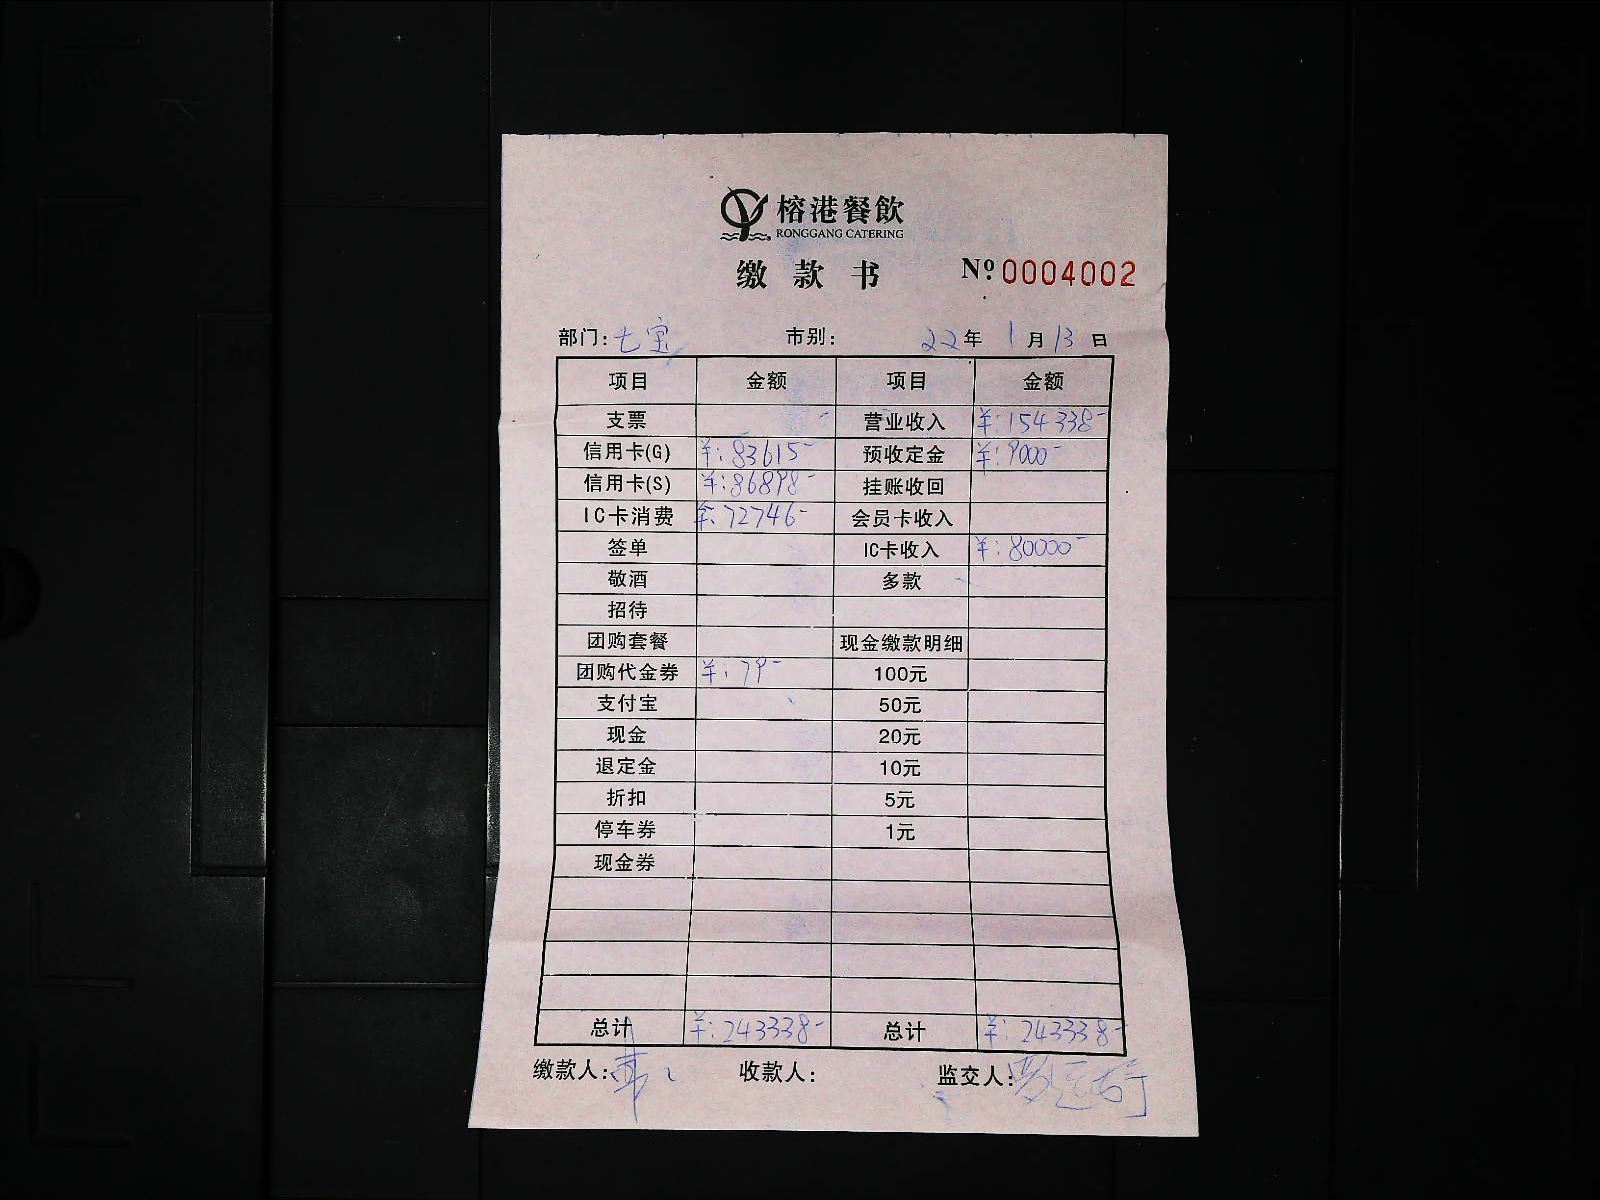 榕港餐飲
RONGGANG CATERING
缴款书 № 0004002
部门: 七宝 市别: 22年 1月 13日
项目 金额 项目 金额
支票 - 营业收入 ¥:154338-
信用卡(G) ¥:83615- 预收定金 ¥:9000-
信用卡(S) ¥:86898- 挂账收回
IC卡消费 ¥:72746- 会员卡收入
签单 IC卡收入 ¥:80000-
敬酒 多款
招待
团购套餐 现金缴款明细
团购代金券 ¥:79- 100元
支付宝 50元
现金 20元
退定金 10元
折扣 5元
停车券 1元
现金券
总计 ¥:243338- 总计 ¥:243338-
缴款人: 收款人: 监交人: